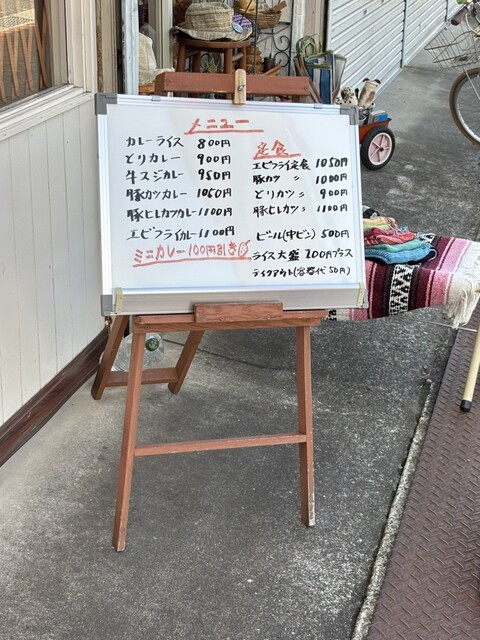 メニュー
カレーライス 800円
とりカレー 900円
牛スジカレー 950円
豚カツカレー 1050円
豚ヒレカツカレー 1100円
エビフライカレー 1100円
ミニカレー 100円引き
定食
エビフライ定食 1050円
豚カツ 〃 1000円
とりカツ 〃 900円
豚ヒレカツ 〃 1100円
ビール(中ビン) 500円
ライス大盛 200円プラス
テイクアウト(容器代 50円)